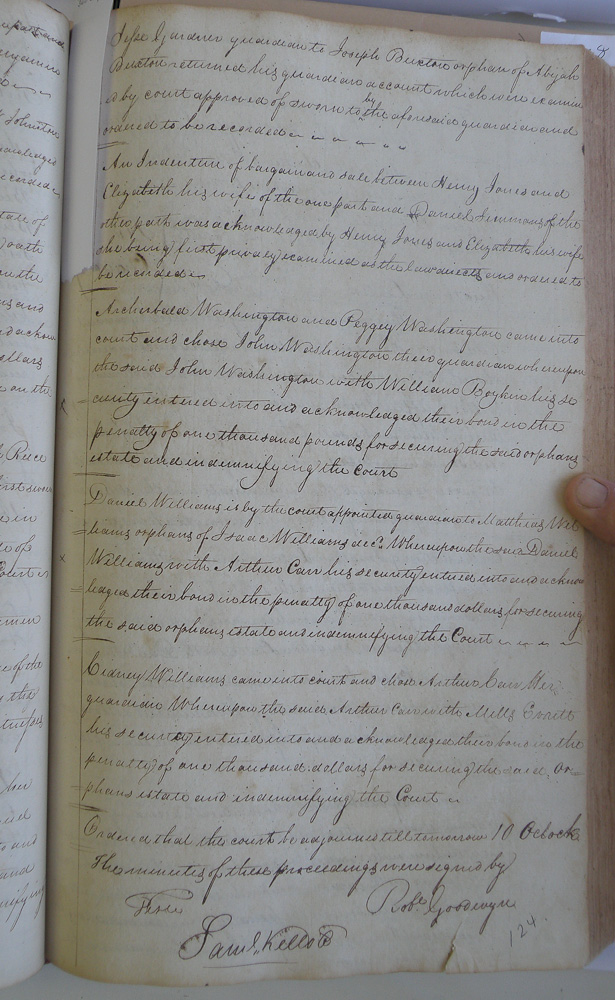 Jesse Gardner guardian to Joseph Buxton orphan of Abijah
Buxton returned his guardian account which were examin
ed by court approved of sworn to by the aforesaid guardian and
ordered to be recorded
An Indenture of bargain and sale between Henry Jones and
Elizabeth his wife of the one part and Daniel Simmons of the
other part was acknowledged by Henry Jones and Elizabeth his wife
she being first privately examined as the law directs and ordered to
be recorded
Archerbald Washington and Peggey Washington came into
court and chose John Washington their guardian whereupon
the said John Washington with William Boykin his se
curity entered into and acknowledged their bond in the
penalty of one thousand pounds for securing the said orphans
estate and indemnifying the Court
Daniel Williams is by the court appointed guardian to Matthew Wil
liams orphans of Isaac Williams decd. Whereupon the said Daniel
Williams with Arthur Carr his security entered into and acknow
ledged their bond in the penalty of one thousand dollars for securing
the said orphans estate and indemnifying the Court
Cidney Williams came into court and chose Arthur Carr Her
guardian Whereupon the said Arthur Carr with Mills Everitt
his security entered into and acknowledged their bond in the
penalty of one thousand dollars for securing the said, Or=
phans estate and indemnifying the Court
Ordered that the court be adjourned till tomorrow 10 Oclock
The minutes of these proceedings were signed by
Robt. Goodwyn
Saml. Kello
124.